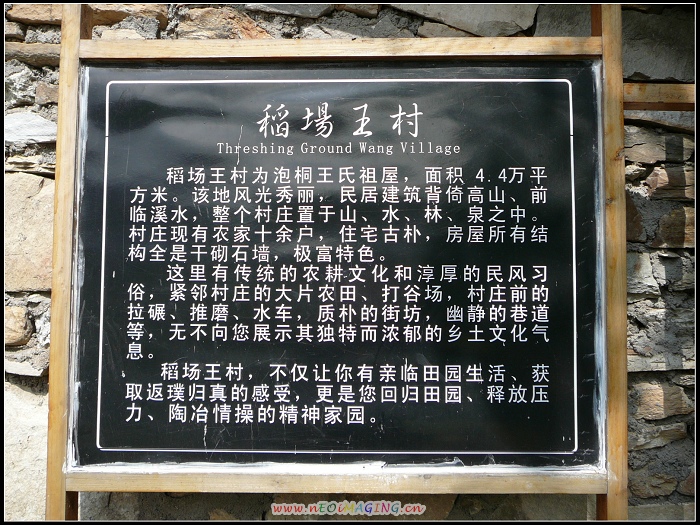 稻場王村
Threshing Ground Wang Village
稻场王村为泡桐王氏祖屋，面积 4.4万平
方米。该地风光秀丽，民居建筑背倚高山、前
临溪水，整个村庄置于山、水、林、泉之中。
村庄现有农家十余户，住宅古朴，房屋所有结
构全是干砌石墙，极富特色。
这里有传统的农耕文化和淳厚的民风习
俗，紧邻村庄的大片农田、打谷场，村庄前的
拉碾、推磨、水车，质朴的街坊，幽静的巷道
等，无不向您展示其独特而浓郁的乡土文化气
息。
稻场王村，不仅让你有亲临田园生活、获
取返璞归真的感受，更是您回归田园、释放压
力、陶冶情操的精神家园。
www.nEOiMAGiNG.cn